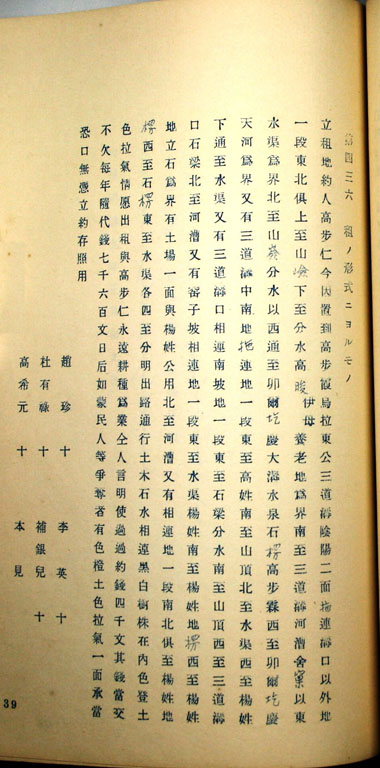 第四三六 租ノ形式ニヨルモノ
立租地約人高步仁今因置到高步霞烏拉東公三道溝陰陽二面拖連溝口以外地
一段東北俱上至山嶮下至分水高峻伊母養老地爲界南至三道溝河漕舍窠以東
水渠爲界北至山葵分水以西通至卯爾圪慶大溝水泉石楞高步霖西至卯爾圪慶
天河爲界又有三道溝中南地拖連地一段東至高姓南至山頂北至水渠西至楊姓
下通至水渠又有三道溝口相連南坡地一段東至石梁分水南至山頂西至三道溝
口石梁北至河漕又有窑子坡相連地一段東至水渠楊姓南至楊姓地楞西至楊姓
地立石爲界有土場一面與楊姓公用北至河漕又有相連地一段南北俱至楊姓地
楞西至石楞東至水渠各四至分明出路通行土木石水相連黑白樹株在內色登土
色拉氣情愿出租與高步仁永遠耕種爲業仝人言明使過過約錢四千文其錢當交
不欠每年隨代錢七千六百文日后如蒙民人等爭奪者有色橙土色拉氣一面承當
恐口無憑立約存照用
趙珍十 李英十
杜有祿十 補銀兒十
高希元十 本見
39